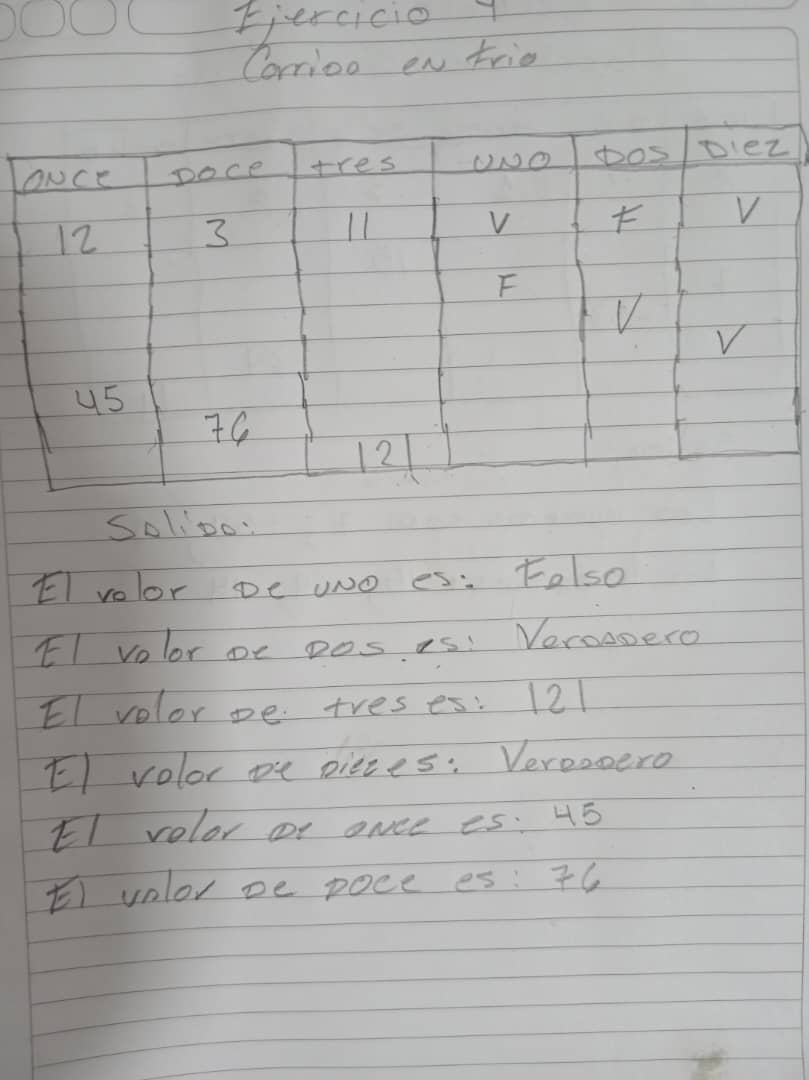 Ejercicio 4
Corrido en frio
ONCE DOCE tres UNO DOS Diez
12 3 11 V F V
F
V
V
45
76
121
Salida:
El valor De UNO es: Falso
El valor De DOS es: Verdadero
El valor De tres es: 121
El valor De Diez es: Verdadero
El valor De once es: 45
El valor De Doce es: 76